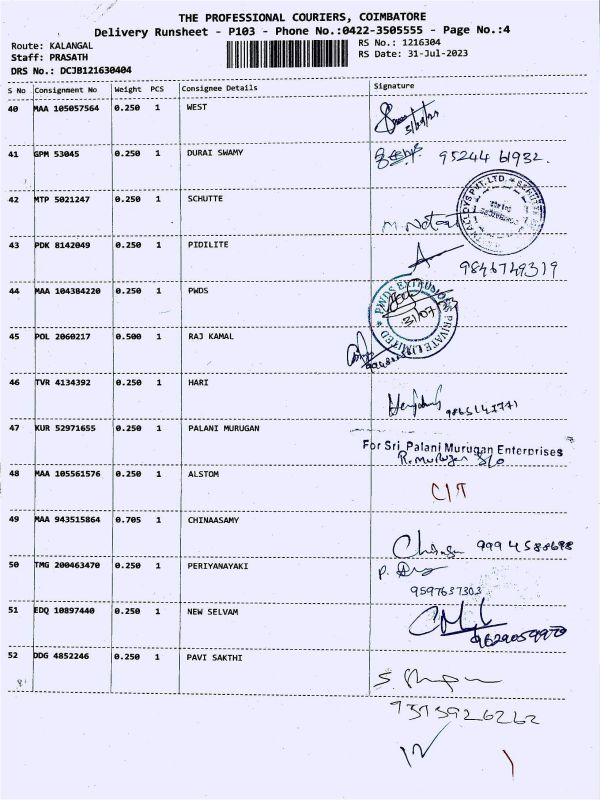 THE PROFESSIONAL COURIERS, COIMBATORE
Delivery Runsheet - P103 - Phone No.:0422-3505555 - Page No.:4
Route: KALANGAL
RS No.: 1216304
Staff: PRASATH
RS Date: 31-Jul-2023
DRS No.: DCJB121630404
S No Consignment No Weight PCS Consignee Details Signature
40 MAA 105057564 0.250 1 WEST
41 GPM 53045 0.250 1 DURAI SWAMY 95244 61932.
42 MTP 5021247 0.250 1 SCHUTTE
43 PDK 8142049 0.250 1 PIDILITE 9846749319
44 MAA 104384220 0.250 1 PWDS
PWDS EXTRUSIONS PRIVATE LIMITED
31/07
45 POL 2060217 0.500 1 RAJ KAMAL
46 TVR 4134392 0.250 1 HARI
47 KUR 52971655 0.250 1 PALANI MURUGAN
For Sri Palani Murugan Enterprises
48 MAA 105561576 0.250 1 ALSTOM
49 MAA 943515864 0.705 1 CHINAASAMY 9994588698
50 TMG 200463470 0.250 1 PERIYANAYAKI
9597637303
51 EDQ 10897440 0.250 1 NEW SELVAM
9629059979
52 DDG 4852246 0.250 1 PAVI SAKTHI